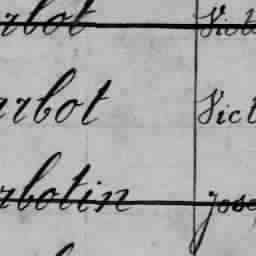 rbot Vict
rbot Vict
rbotin Jose